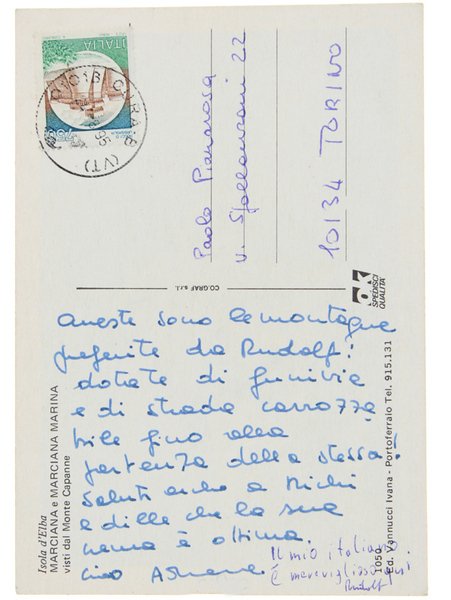 ITALIA
750
(VT)
95
Paolo Pianarosa
v. Spallanzani 22
10134 TORINO
CO.GRAF s.r.l.
SPEDISCI
QUALITÀ
Queste sono le montagne
preferite da Rudolf:
dotate di funivia
e di strada carrozza
bile fino alla
partenza della stessa!
Saluti anche a Michi
e dille che la sua
crema è ottima.
Ciao
Il mio italiano
è meraviglioso
Rudolf
Isola d'Elba
MARCIANA e MARCIANA MARINA
visti dal Monte Capanne
1050
Ed. Vannucci Ivana - Portoferraio Tel. 915.131